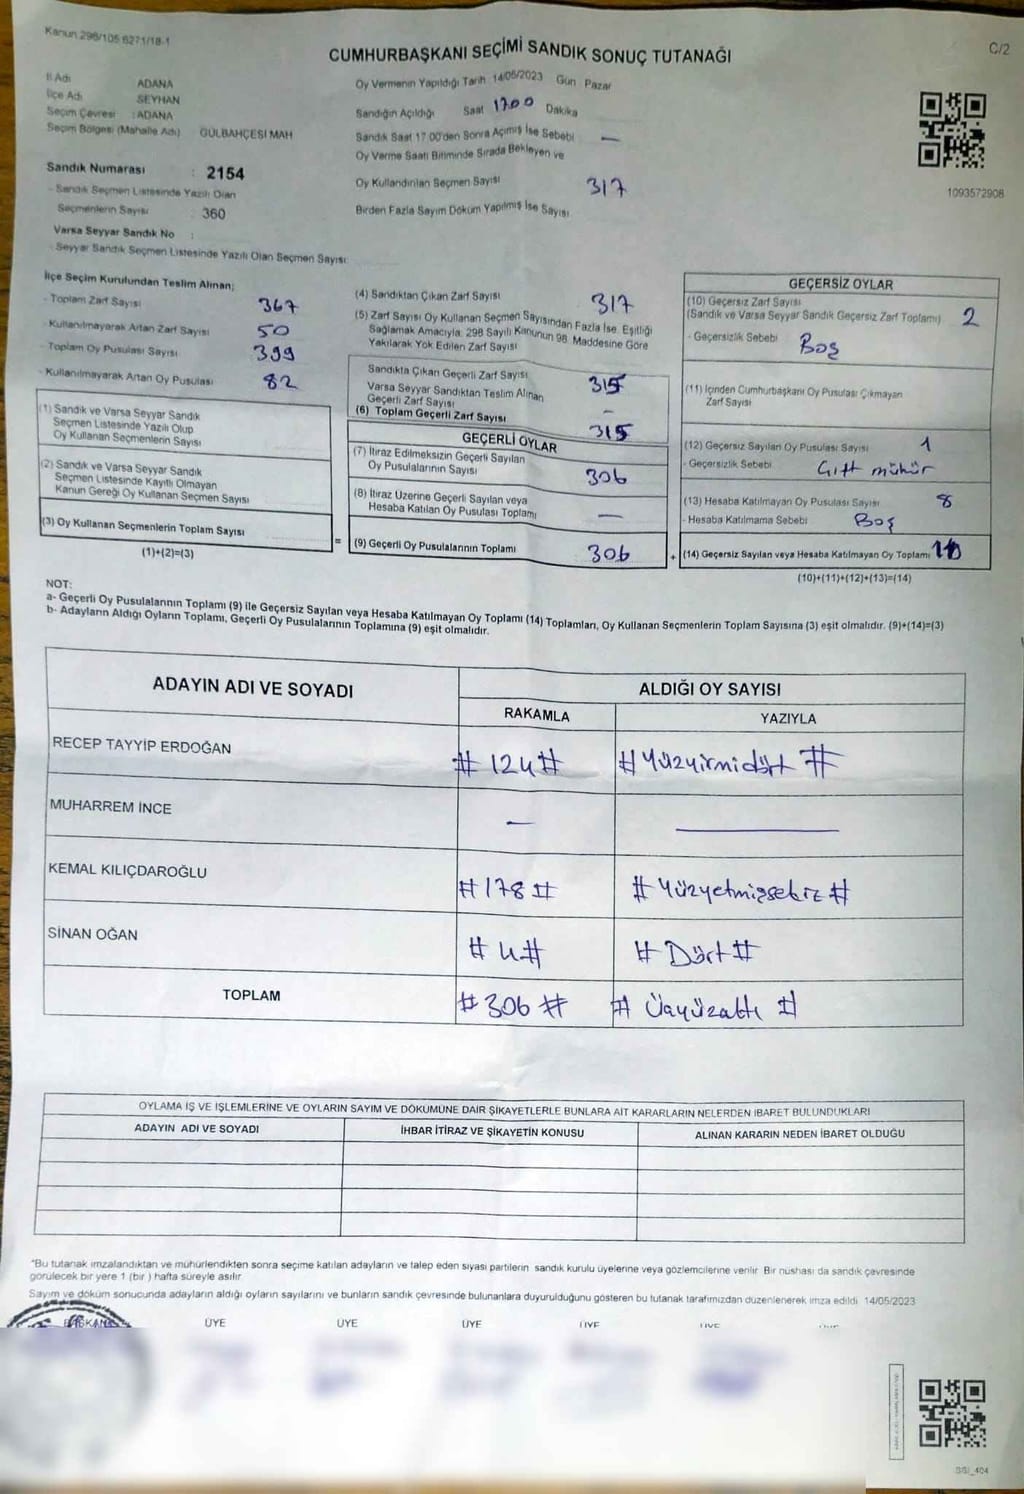 Kanun 298/105 6271/18-1
C/2
CUMHURBAŞKANI SEÇİMİ SANDIK SONUÇ TUTANAĞI
İl Adı ADANA
İlçe Adı SEYHAN
Seçim Çevresi : ADANA
Seçim Bölgesi (Mahalle Adı) GÜLBAHÇESİ MAH
Sandık Numarası : 2154
- Sandık Seçmen Listesinde Yazılı Olan
Seçmenlerin Sayısı : 360
Varsa Seyyar Sandık No :
- Seyyar Sandık Seçmen Listesinde Yazılı Olan Seçmen Sayısı:
Oy Vermenin Yapıldığı Tarih 14/05/2023 Gün Pazar
Sandığın Açıldığı Saat 1700 Dakika
Sandık Saat 17.00'den Sonra Açımış İse Sebebi —
Oy Verme Saati Bitiminde Sırada Bekleyen ve
Oy Kullandırılan Seçmen Sayısı 317
Birden Fazla Sayım Döküm Yapılmış İse Sayısı
1093572908
İlçe Seçim Kurulundan Teslim Alınan;
- Toplam Zarf Sayısı 367
- Kullanılmayarak Artan Zarf Sayısı 50
- Toplam Oy Pusulası Sayısı 399
- Kullanılmayarak Artan Oy Pusulası 82
(1) Sandık ve Varsa Seyyar Sandık
Seçmen Listesinde Yazılı Olup
Oy Kullanan Seçmenlerin Sayısı
(2) Sandık ve Varsa Seyyar Sandık
Seçmen Listesinde Kayıtlı Olmayan
Kanun Gereği Oy Kullanan Seçmen Sayısı
(3) Oy Kullanan Seçmenlerin Toplam Sayısı
(1)+(2)=(3)
=
(4) Sandıktan Çıkan Zarf Sayısı 317
(5) Zarf Sayısı Oy Kullanan Seçmen Sayısından Fazla İse, Eşitliği
Sağlamak Amacıyla; 298 Sayılı Kanunun 98. Maddesine Göre
Yakılarak Yok Edilen Zarf Sayısı
Sandıkta Çıkan Geçerli Zarf Sayısı 315
Varsa Seyyar Sandıktan Teslim Alınan
Geçerli Zarf Sayısı -
(6) Toplam Geçerli Zarf Sayısı 315
GEÇERLİ OYLAR
(7) İtiraz Edilmeksizin Geçerli Sayılan
Oy Pusulalarının Sayısı 306
(8) İtiraz Üzerine Geçerli Sayılan veya
Hesaba Katılan Oy Pusulası Toplamı —
(9) Geçerli Oy Pusulalarının Toplamı 306
+
GEÇERSİZ OYLAR
(10) Geçersiz Zarf Sayısı
(Sandık ve Varsa Seyyar Sandık Geçersiz Zarf Toplamı) 2
- Geçersizlik Sebebi Boş
(11) İçinden Cumhurbaşkanı Oy Pusulası Çıkmayan
Zarf Sayısı
(12) Geçersiz Sayılan Oy Pusulası Sayısı 1
- Geçersizlik Sebebi Çift mühür
(13) Hesaba Katılmayan Oy Pusulası Sayısı 8
- Hesaba Katılmama Sebebi Boş
(14) Geçersiz Sayılan veya Hesaba Katılmayan Oy Toplamı
(10)+(11)+(12)+(13)=(14)
NOT:
a- Geçerli Oy Pusulalarının Toplamı (9) ile Geçersiz Sayılan veya Hesaba Katılmayan Oy Toplamı (14) Toplamları, Oy Kullanan Seçmenlerin Toplam Sayısına (3) eşit olmalıdır. (9)+(14)=(3)
b- Adayların Aldığı Oyların Toplamı, Geçerli Oy Pusulalarının Toplamına (9) eşit olmalıdır.
ADAYIN ADI VE SOYADI ALDIĞI OY SAYISI
RAKAMLA YAZIYLA
RECEP TAYYİP ERDOĞAN # 124# #Yüzyirmidört #
MUHARREM İNCE — —
KEMAL KILIÇDAROĞLU #178# #Yüzyetmişsekiz#
SİNAN OĞAN #4# # Dört#
TOPLAM #306# # Üçyüzaltı #
OYLAMA İŞ VE İŞLEMLERİNE VE OYLARIN SAYIM VE DÖKÜMÜNE DAİR ŞİKAYETLERLE BUNLARA AİT KARARLARIN NELERDEN İBARET BULUNDUKLARI
ADAYIN ADI VE SOYADI İHBAR İTİRAZ VE ŞİKAYETİN KONUSU ALINAN KARARIN NEDEN İBARET OLDUĞU
*Bu tutanak imzalandıktan ve mühürlendikten sonra seçime katılan adayların ve talep eden siyasi partilerin sandık kurulu üyelerine veya gözlemcilerine verilir. Bir nüshası da sandık çevresinde
görülecek bir yere 1 (bir ) hafta süreyle asılır.
Sayım ve döküm sonucunda adayların aldığı oyların sayılarını ve bunların sandık çevresinde bulunanlara duyurulduğunu gösteren bu tutanak tarafımızdan düzenlenerek imza edildi. 14/05/2023
BAŞKAN ÜYE ÜYE ÜYE ÜYE ÜYE